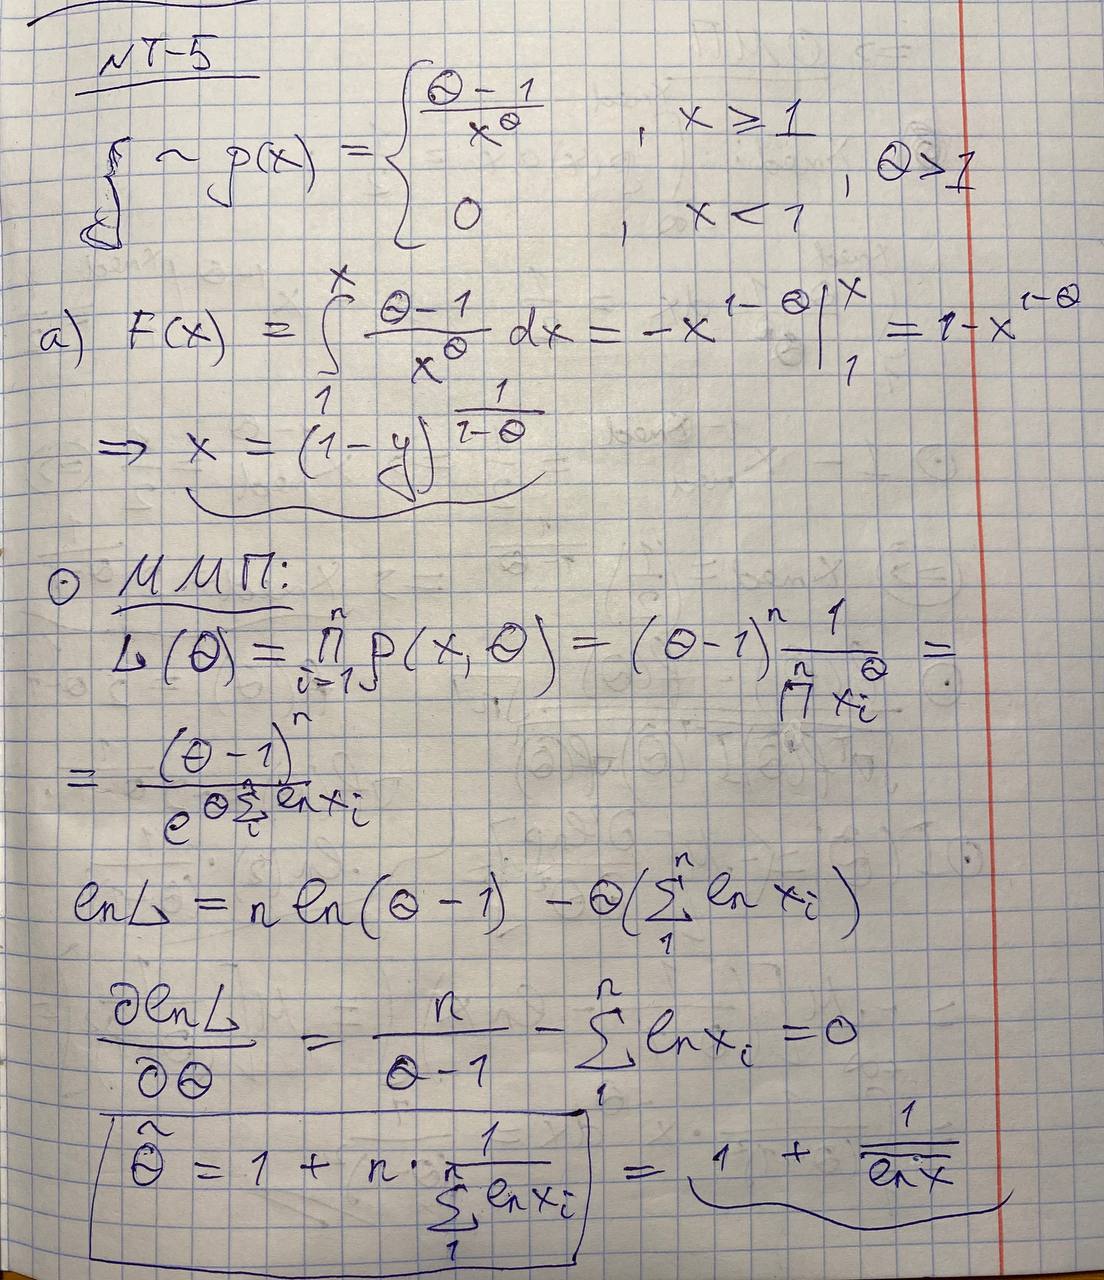 NT-5
ξ ~ p(x) = { (θ - 1)/x^θ , x ≥ 1 ; 0 , x < 1 , θ > 1
a) F(x) = ∫_1^x (θ-1)/x^θ dx = -x^(1-θ) |_1^x = 1 - x^(1-θ)
⇒ x = (1 - y)^(1/(1-θ))
⊙ ММП:
L(θ) = ∏_{i=1}^n p(x, θ) = (θ-1)^n 1/(∏^n x_i^θ) =
= (θ - 1)^n / e^(θ Σ_i^n ln x_i)
ln L = n ln(θ - 1) - θ(Σ_1^n ln x_i)
∂ln L/∂θ = n/(θ - 1) - Σ_1^n ln x_i = 0
θ̃ = 1 + n · 1/(Σ_1^n ln x_i) = 1 + 1/(\overline{ln x})